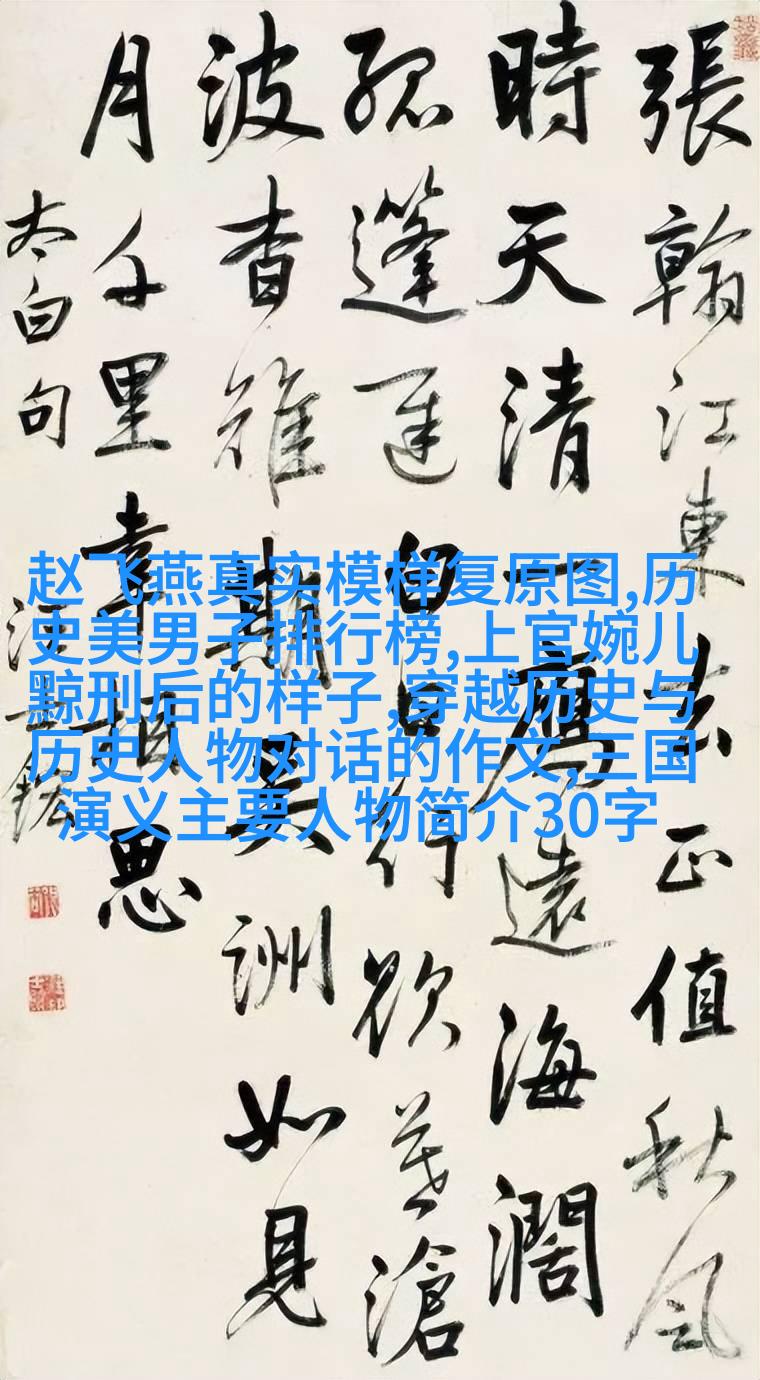 張翰江東去正值秋風
時天清一鴈遠海濶
孤蓬遲白日行欲暮滄
波杳難期吳洲如見
月千里幸相思
太白句
汪士鋐
赵飞燕真实模样复原图,历
史美男子排行榜,上官婉儿
黥刑后的样子,穿越历史与
历史人物对话的作文,三国
演义主要人物简介30字